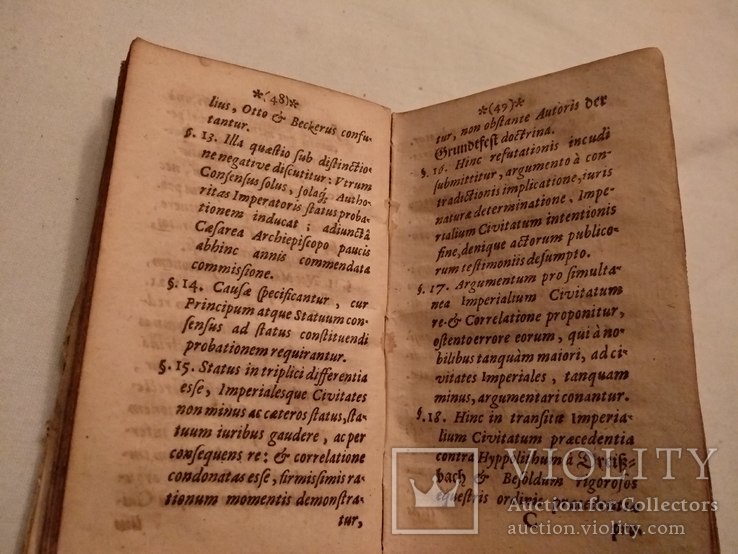 *(48)*
lius, Otto & Beckerus confu-
tantur.
§. 13. Illa quæstio sub distinctio-
ne negative discutitur: Vtrum
Consensus solus, solaq́, Autho-
ritas Imperatoris status proba-
tionem inducat; adjunctâ
Cæsarea Archiepiscopo paucis
abhinc annis commendata
commissione.
§. 14. Causæ specificantur, cur
Principum atque Statuum con-
sensus ad status constituendi
probationem requirantur.
§. 15. Status in triplici differentia
esse, Imperialesque Civitates
non minus ac cæteros status, sta-
tuum iuribus gaudere, ac per
consequens re: & correlatione
condonatas esse, firmissimis ra-
tionum momentis demonstra-
tur,
*(49)*
tur, non obstante Autoris der
Grundfest doctrina.
§. 16. Hinc refutationis incudi
submittitur, argumento à con-
tradictionis implicatione, iuris
naturæ determinatione, Impe-
rialium Civitatum intentionis
fine, denique actorum publico-
rum testimoniis desumpto.
§. 17. Argumentum pro simulta-
nea Imperialium Civitatum
re- & Correlatione proponitur,
ostento errore eorum, qui à no-
bilibus tanquàm maiori, ad ci-
vitates Imperiales, tanquam
minus, argumentari conantur.
§. 18. Hinc in transitu Imperia-
lium Civitatum præcedentia
contra Hyppolithum à
bach & Besoldum rigorosos
equestris ordinis
VIOLITY
Auction for Collectors
auction.violity.com